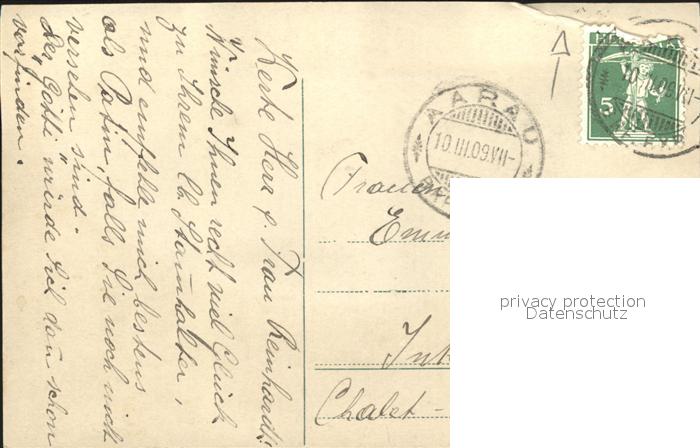 Werte Herr & Frau Reinhardt!
Wünsche Ihnen recht viel Glück
zu Ihrem lb. Stammhalter,
und empfehle mich bestens
als Patin, falls Sie noch nicht
versehen sind.
Der „Götti" würde sich dann schon
vorfinden.
AARAU
10.III.09.VII-
5
Chalet -
privacy protection
Datenschutz